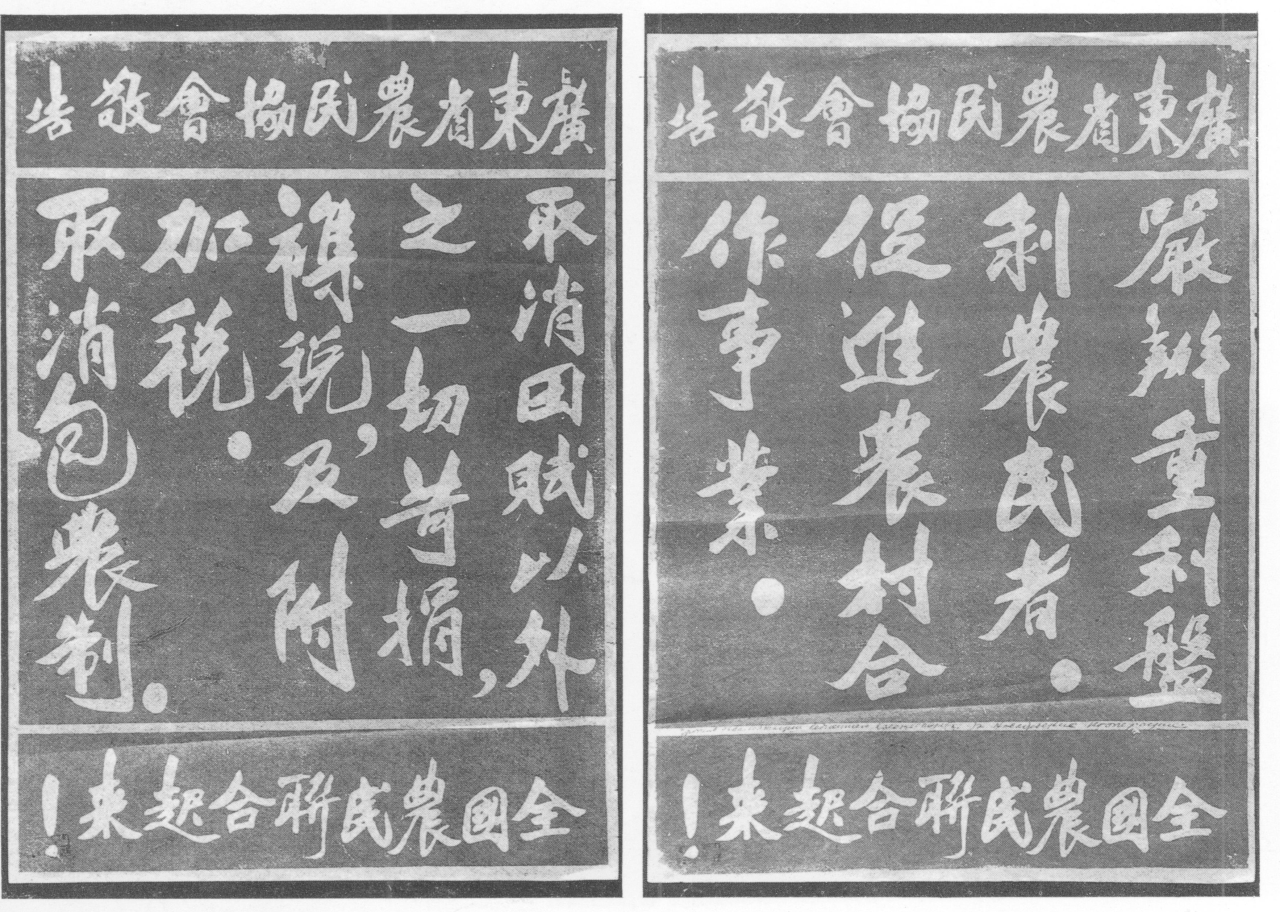 廣東省農民協會敬告
嚴辦重利盤
剥農民者。
促進農村合
作事業。
全國農民聯合起来！
廣東省農民協會敬告
取消田賦以外
之一切苛捐，
襍税，及附
加税。
取消包農制。
全國農民聯合起来！